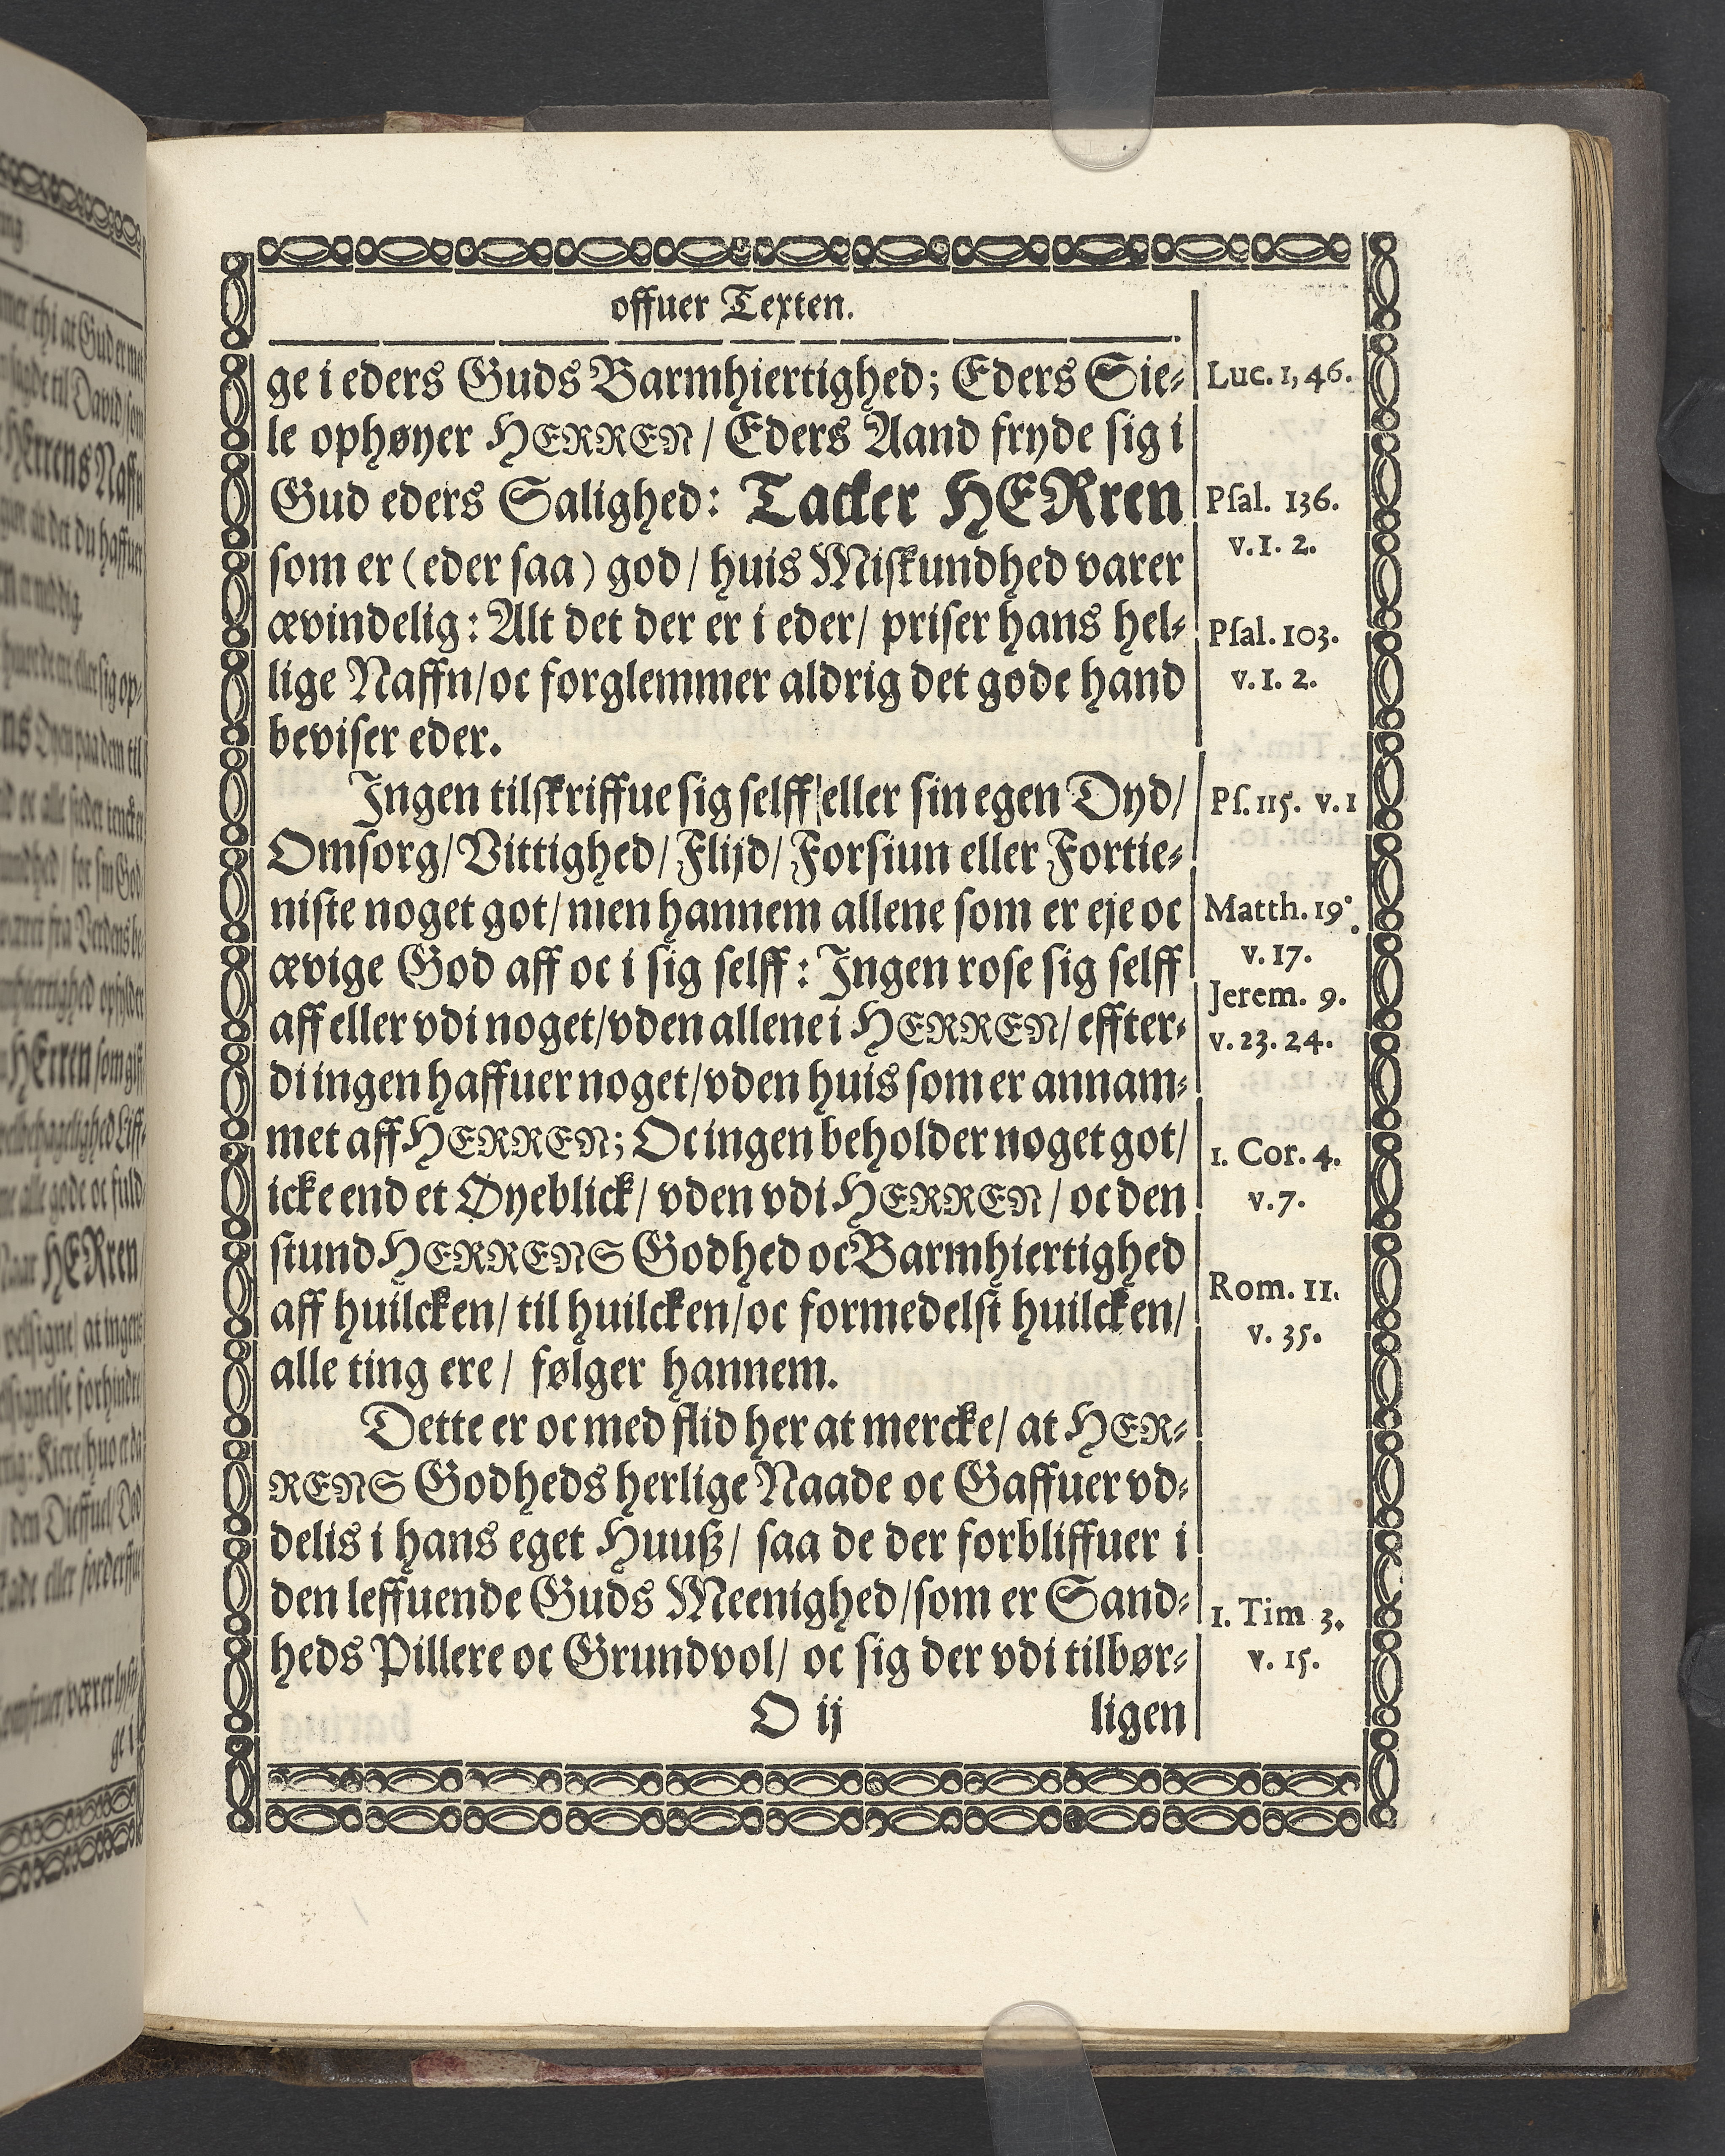 offuer Texten.
ge i eders Guds Barmhiertighed; Eders Sie-
le ophøyer HERREN / Eders Aand fryde sig i
Gud eders Salighed: Tacker HERren
som er (eder saa) god / huis Miskundhed varer
ævindelig: Alt det der er i eder / priser hans hel-
lige Naffn / oc forglemmer aldrig det gode hand
beviser eder.
Ingen tilskriffue sig selff / eller sin egen Dyd /
Omsorg / Vittighed / Flijd / Forsiun eller Fortie-
niste noget got / men hannem allene som er eje oc
ævige God aff oc i sig selff: Ingen rose sig selff
aff eller vdi noget / vden allene i HERREN / effter-
di ingen haffuer noget / vden huis som er annam-
met aff HERREN; Oc ingen beholder noget got /
icke end et Øyeblick / vden vdi HERREN / oc den
stund HERRENS Godhed oc Barmhiertighed
aff huilcken / til huilcken / oc formedelst huilcken /
alle ting ere / følger hannem.
Dette er oc med flid her at mercke / at HER-
RENS Godheds herlige Naade oc Gaffuer vd-
delis i hans eget Huuß / saa de der forbliffuer i
den leffuende Guds Meenighed / som er Sand-
heds Pillere oc Grundvol / oc sig der vdi tilbør-
O ij ligen
Luc. 1, 46.
Psal. 136.
v. 1. 2.
Psal. 103.
v. 1. 2.
Ps. 115. v. 1
Matth. 19.
v. 17.
Jerem. 9.
v. 23. 24.
1. Cor. 4.
v. 7.
Rom. 11.
v. 35.
1. Tim 3.
v. 15.